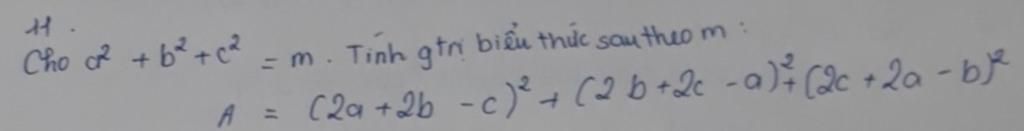 11.
Cho a² + b² + c² = m. Tính gtrị biểu thức sau theo m:
A = (2a + 2b - c)² + (2b + 2c - a)² + (2c + 2a - b)²